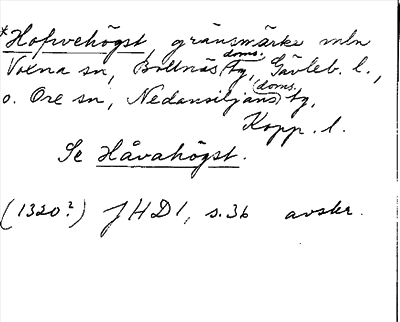 *Hofwehögst, gränsmärke mln
Voxna sn, Bollnäs doms. tg, Gävleb. l.,
o. Ore sn, Nedansiljans (doms.) tg,
Kopp. l.
Se Håvahögst.
(1320?) JHD 1, s. 36 avskr.